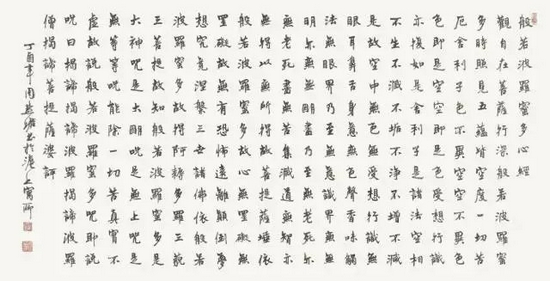 般若波羅蜜多心經
觀自在菩薩行深般若波羅蜜
多時照見五蘊皆空度一切苦
厄舍利子色不異空空不異色
色即是空空即是色受想行識
亦復如是舍利子是諸法空相
不生不滅不垢不淨不增不減
是故空中無色無受想行識無
眼耳鼻舌身意無色聲香味觸
法無眼界乃至無意識界無無
明亦無無明盡乃至無老死亦
無老死盡無苦集滅道無智亦
無得以無所得故菩提薩埵依
般若波羅蜜多故心無罣礙無
罣礙故無有恐怖遠離顛倒夢
想究竟涅槃三世諸佛依般若
波羅蜜多故得阿耨多羅三藐
三菩提故知般若波羅蜜多是
大神呪是大明呪是無上呪是
無等等呪能除一切苦真實不
虛故說般若波羅蜜多呪即說
呪曰揭諦揭諦波羅揭諦波羅
僧揭諦菩提薩婆訶
丁酉年周書於滬上寓所